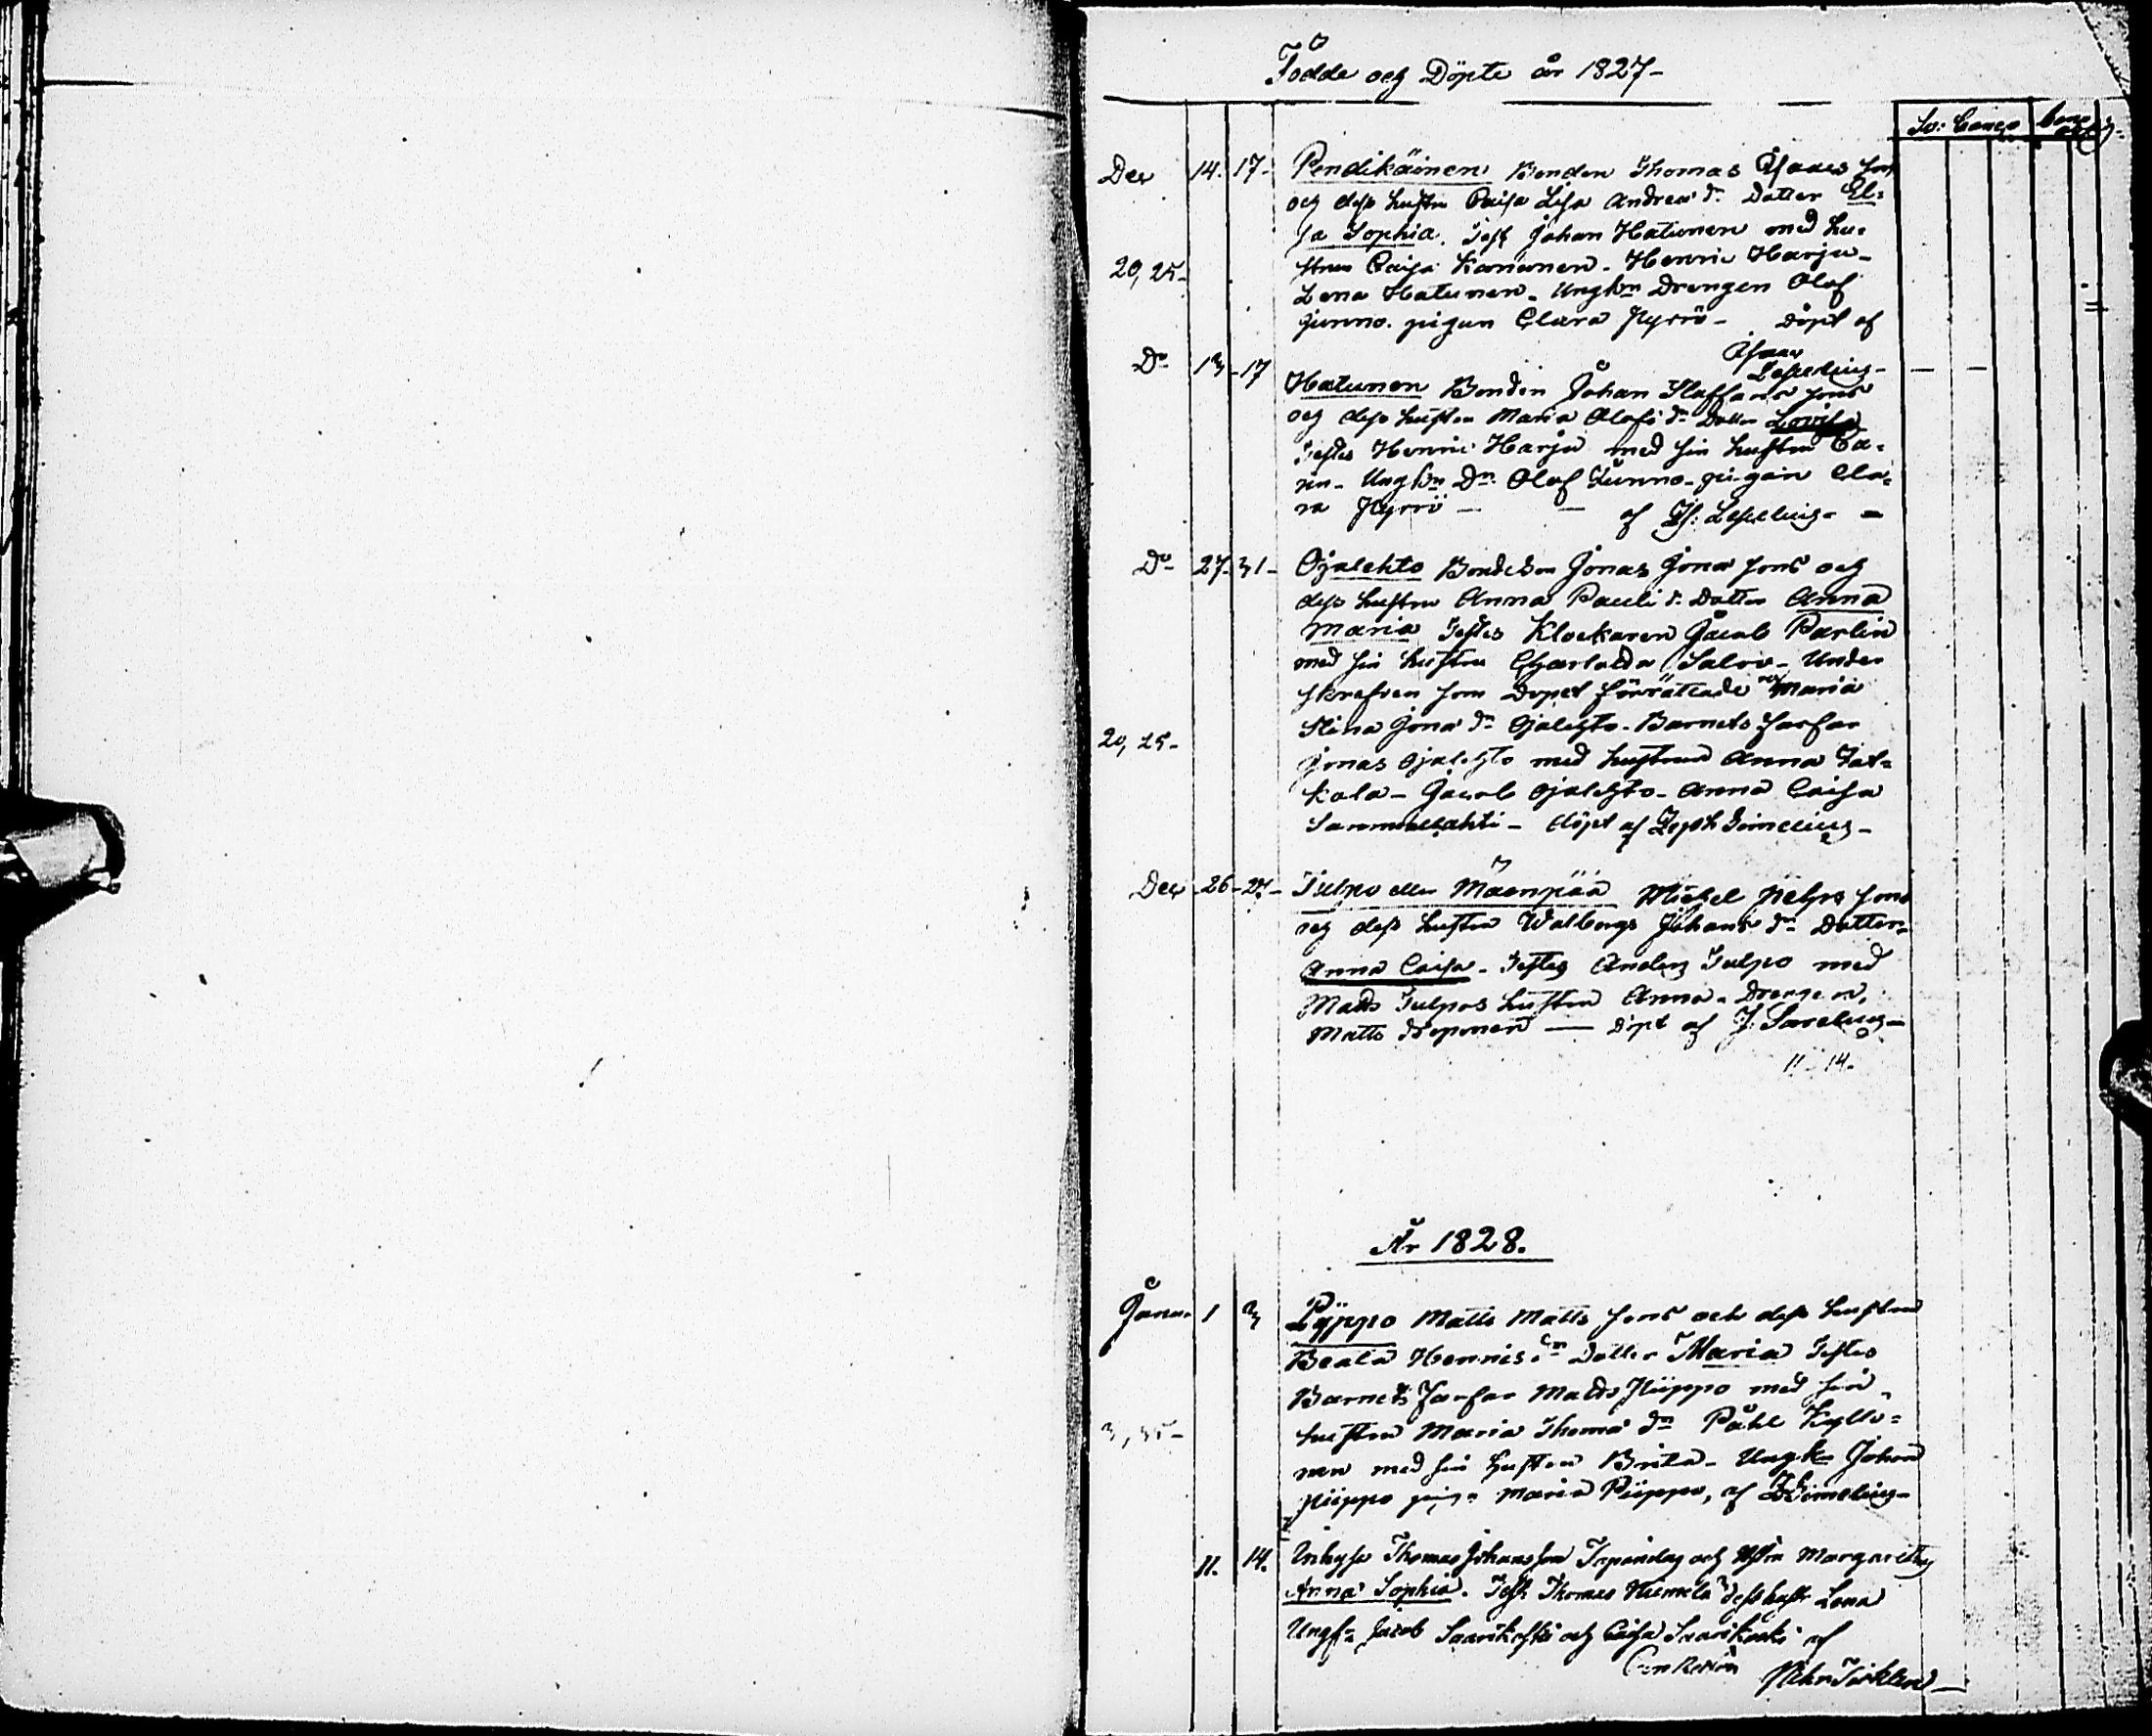 Födde och Döpte år 1827-
Dec 14. 17- Pendikäinen Bonden Thomas Isaacs son
och dess hustru Caisa Lisa Andrea dr Dotter El=
sa Sophia. Test Johan Hatunen med hu=
20, 25- strun Caisa Karianen. Henric Harju-
Lena Hatunen. Ungkn Drengen Olof
Junno. pigan Clara Hyrrö- Döpt af
Isaac
Do 13-17 Hatunen Bonden Johan Staffans sons
och dess hustru Maria Olofs dr Dotter Lovisa
Testes Henric Harju med sin hustru Ca=
rin- Ungkn Dn Olof Junno- pigan Cla=
ra Hyrrö - - af
Do 27. 31- Ojalehto Bondeson Jonas Jona sons och
dess hustru Anna Pauli dr Dotter Anna
Maria Testes Klockaren Jacob Parlin
med sin hustru Charlotta Salov- Under
skrefven som Dopet förrättade Maria
Stina Jona dr Ojalehto- Barnets farfar
20, 25- Jonas Ojalehto med hustrun Anna Jat=
kola- Jacob Ojalehto- Anna Caisa
Sammallahti- döpt af Zeph Simelius-
Dec 26-27- Tulpo eller Mäenpää Michel sons
och dess hustru Walborgs Johans dr Dotter-
Anna Caisa- Testes Anders Tulpo med
Matts Tulpos hustru Anna- Drengen
Matts - döpt af J: Sarelius-
11- 14-
År 1828.
Janu. 1 3 Pÿppo Matts Matts sons och dess hustru
Beata Henrics dr Dotter Maria Testes
Barnets farfar Matts Piippo med sin
3, 25- hustru Maria Thomæ dr Påhl Kyllö=
nen med sin hustru Brita- Ungk Johan
Piippo piga Maria Piippo, af Z Simelius-
11. 14. Inhyse Thomas Johansson och Hstru Margaretha
Anna Sophia. Test Thomas Niemelä dess hustr Lena
Ungk Jacob Saarikoski och Caisa Saarikoski af